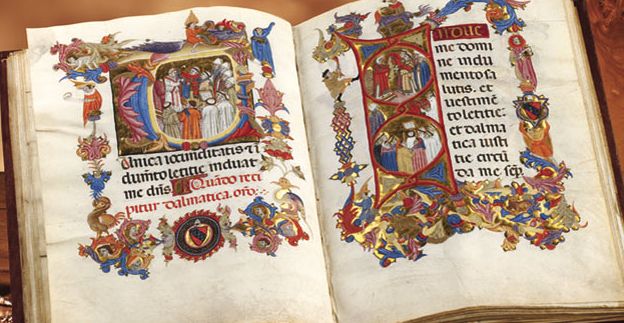 unica iocunditatis ⁊ i
dum̄to letitie induat
me dn̄s. Quādo reci
pitur dalmatica. or̄o.
NDVE
me domi
ne indu
mento sa
lutis. et
uestimē
to letitie:
et dalma
tica iusti
tie circū
da me sēp.